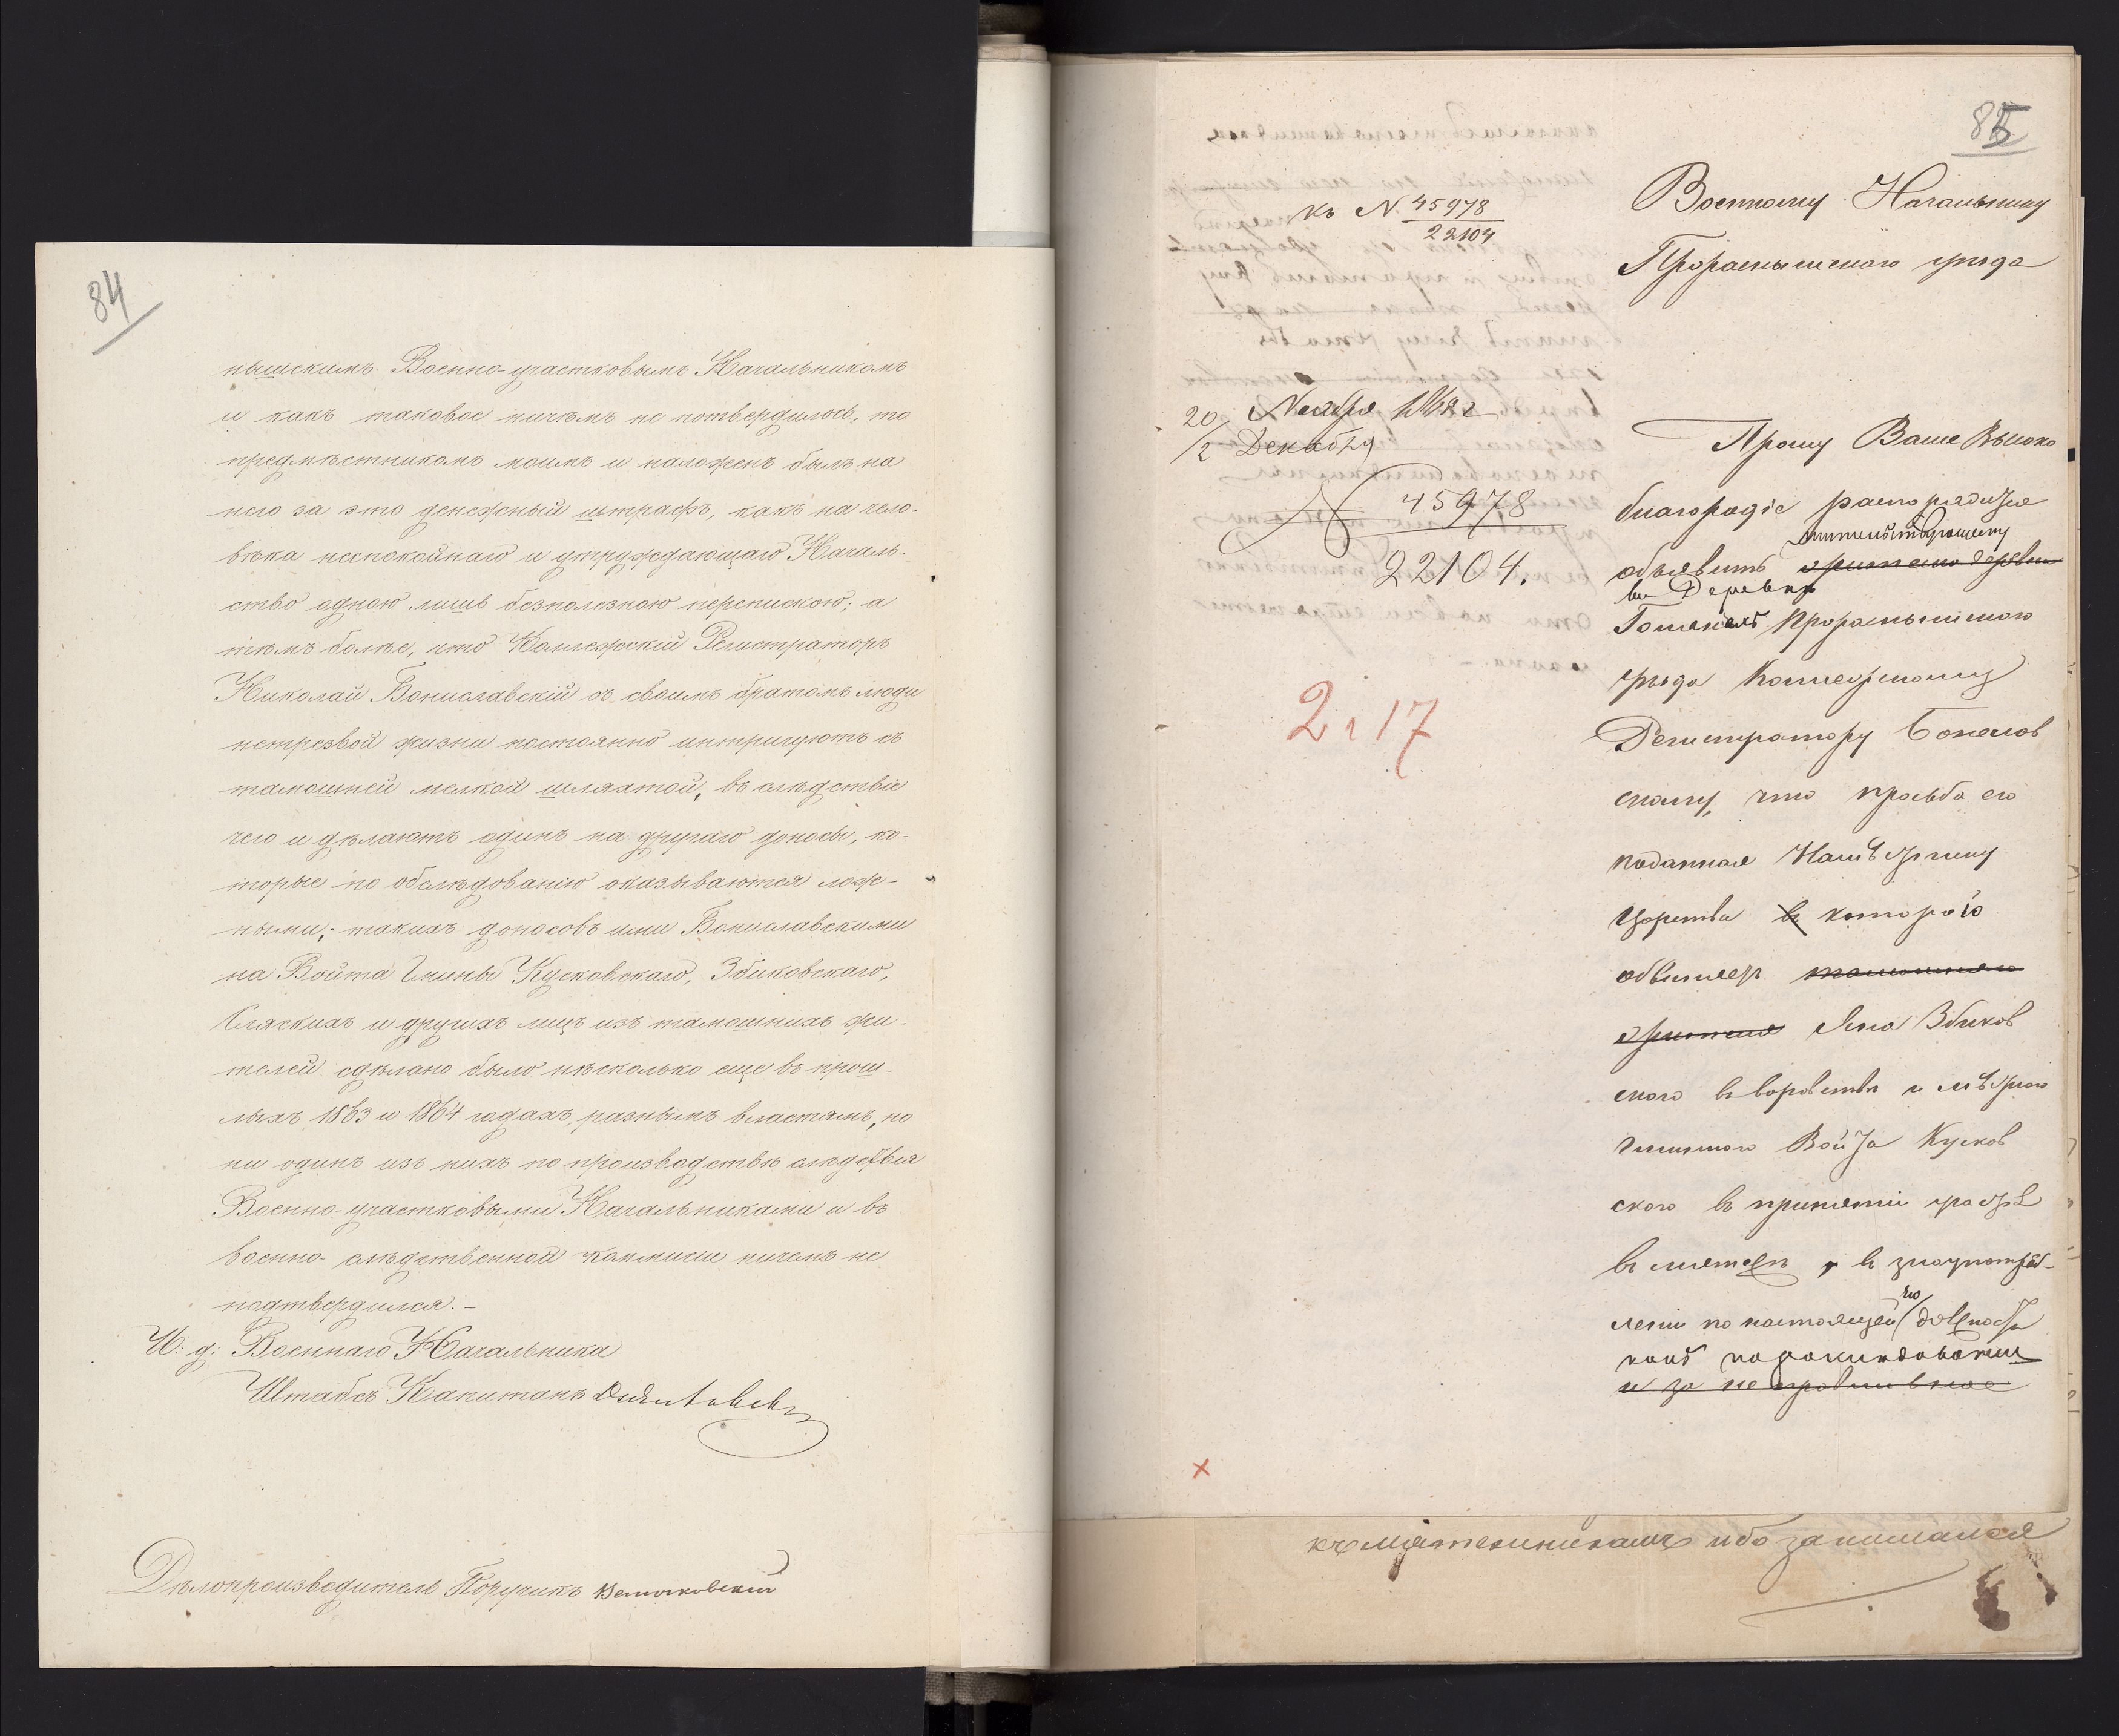 84
нышскимъ Военно-участковымъ Начальникомъ
и какъ таковое ничѣмъ не потвердилось, то
предмѣстникомъ моимъ и наложенъ былъ на
него за это денежный штрафъ, какъ на чело-
вѣка неспокойнаго и утруждающаго Началь-
ство одною лишь безполезною перепискою; а
тѣмъ болѣе, что Коллежскій Регистраторъ
Николай Бониславскій съ своимъ братомъ люди
нетрезвой жизни постоянно интригуютъ съ
тамошней мелкой шляхтой, въ слѣдствіе
чего и дѣлаютъ одинъ на другаго доносы, ко-
торые по обслѣдованію оказываются лож-
ными; такихъ доносовъ ими Бониславскими
на Войта Гмины Кусковскаго, Збиковскаго,
и другихъ лицъ изъ тамошнихъ жи-
телей сдѣлано было нѣсколько еще въ прош-
лыхъ 1863 и 1864 годахъ, разнымъ властямъ, но
ни одинъ изъ нихъ по производствѣ слѣдствія
Военно-участковыми Начальниками и въ
военно-слѣдственной коммисіи ничемъ не
подтвердился. –
И: д: Военнаго Начальника
Штабсъ Капитанъ
Дѣлопроизводитель Поручикъ
85
къ N 45978
22104
Военному Начальнику
Праснышскаго уѣзда
20 Ноября
/2 Декабря
N 45978
22104.
2 г 17
Прошу Ваше Высоко
благородіе распорядиться
жительствующему
объявить жителю деревни
въ Деревнѣ
Праснышскаго
уѣзда Коллежскому
Регистратору Бонислав
скому, что просьба его
поданная Намѣстнику
Царства въ которой
обвиняетъ тамошняго
жителя Яна Збиков
скаго въ воровствѣ и мѣстнаго
гминнаго Войта Кусков
скаго въ принятіи участія
въ мятежѣ, въ злоупотреб-
леніи по настоящей его должности
и за неправильное
къ мятежникамъ ибо занимался